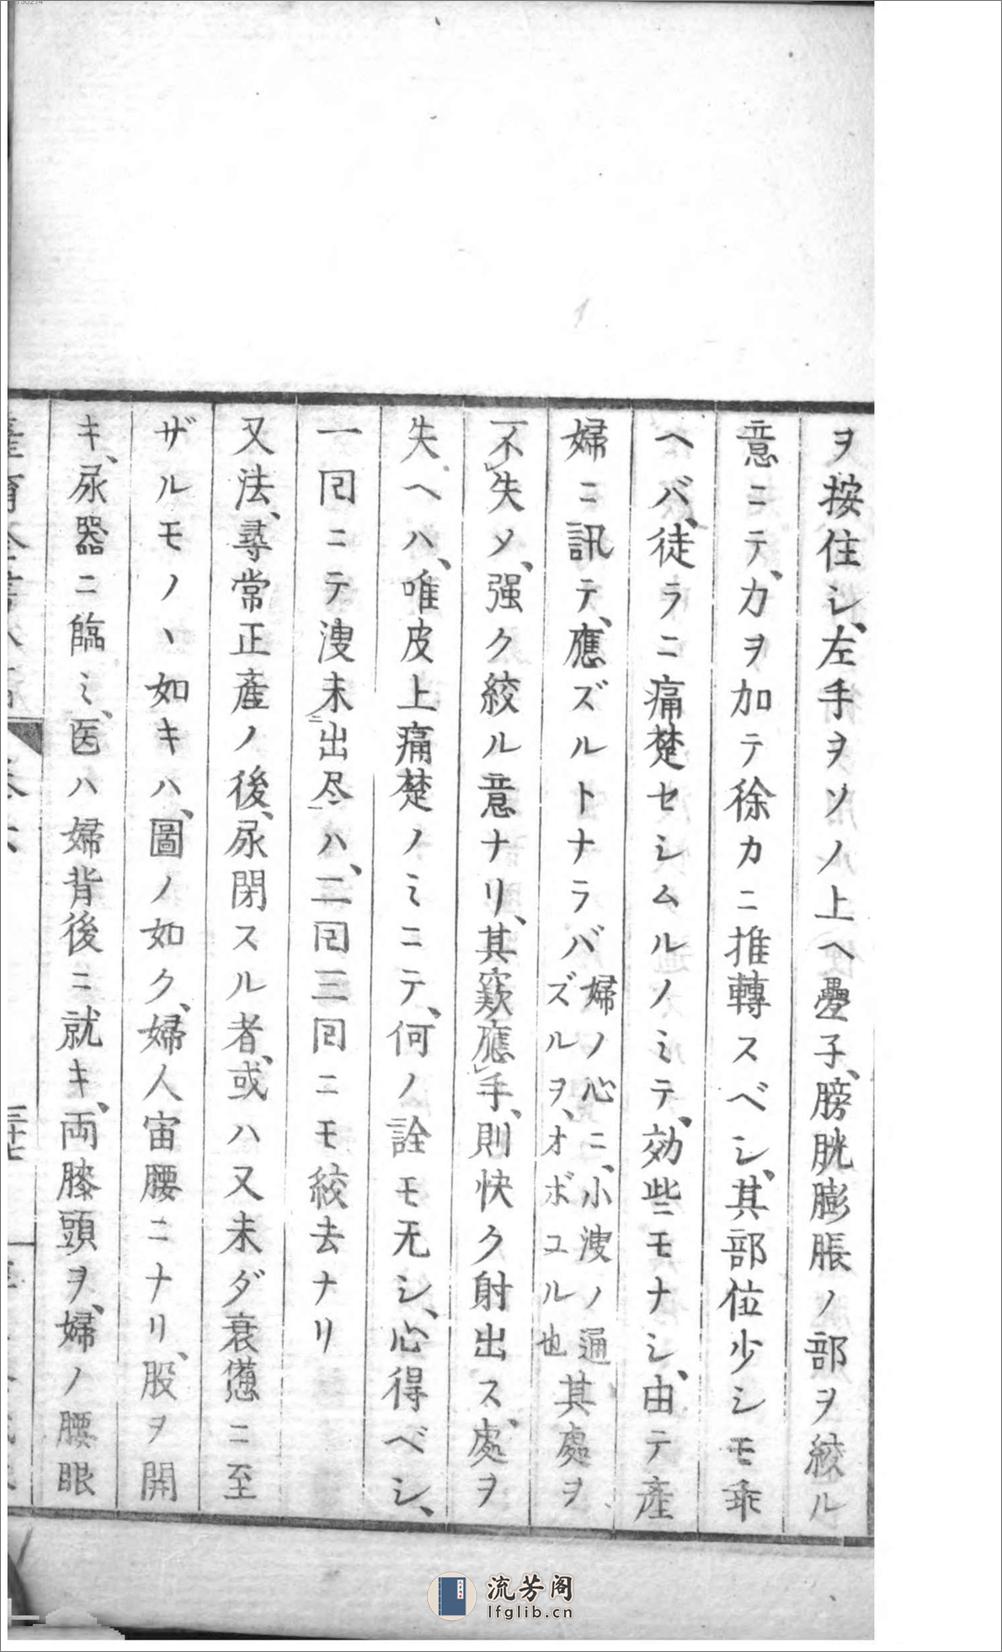 ヲ按住シ、左手ヲソノ上ヘ疊子、膀胱膨脹ノ部ヲ絞ル
意ニテ、力ヲ加テ徐カニ推轉スベシ、其部位少シモ乖
ヘバ、徒ラニ痛楚セシムルノミテ、効些モナシ、由テ産
婦ニ訊テ、應ズルトナラバ婦ノ心ニ、小溲ノ通ズルヲ、オボユル也其處ヲ
不失メ、强ク絞ル意ナリ、其窾應手、則快ク射出ス、處ヲ
失ヘハ、唯皮上痛楚ノミニテ、何ノ詮モ无シ、心得ベシ、
一囘ニテ溲未出尽ハ、二囘三囘ニモ絞去ナリ
又法、尋常正産ノ後、尿閉スル者、或ハ又未ダ衰憊ニ至
ザルモノヽ如キハ、圖ノ如ク、婦人宙腰ニナリ、股ヲ開
キ、尿器ニ臨ミ、医ハ婦背後ニ就キ、両膝頭ヲ、婦ノ腰眼
流芳阁
lfglib.cn